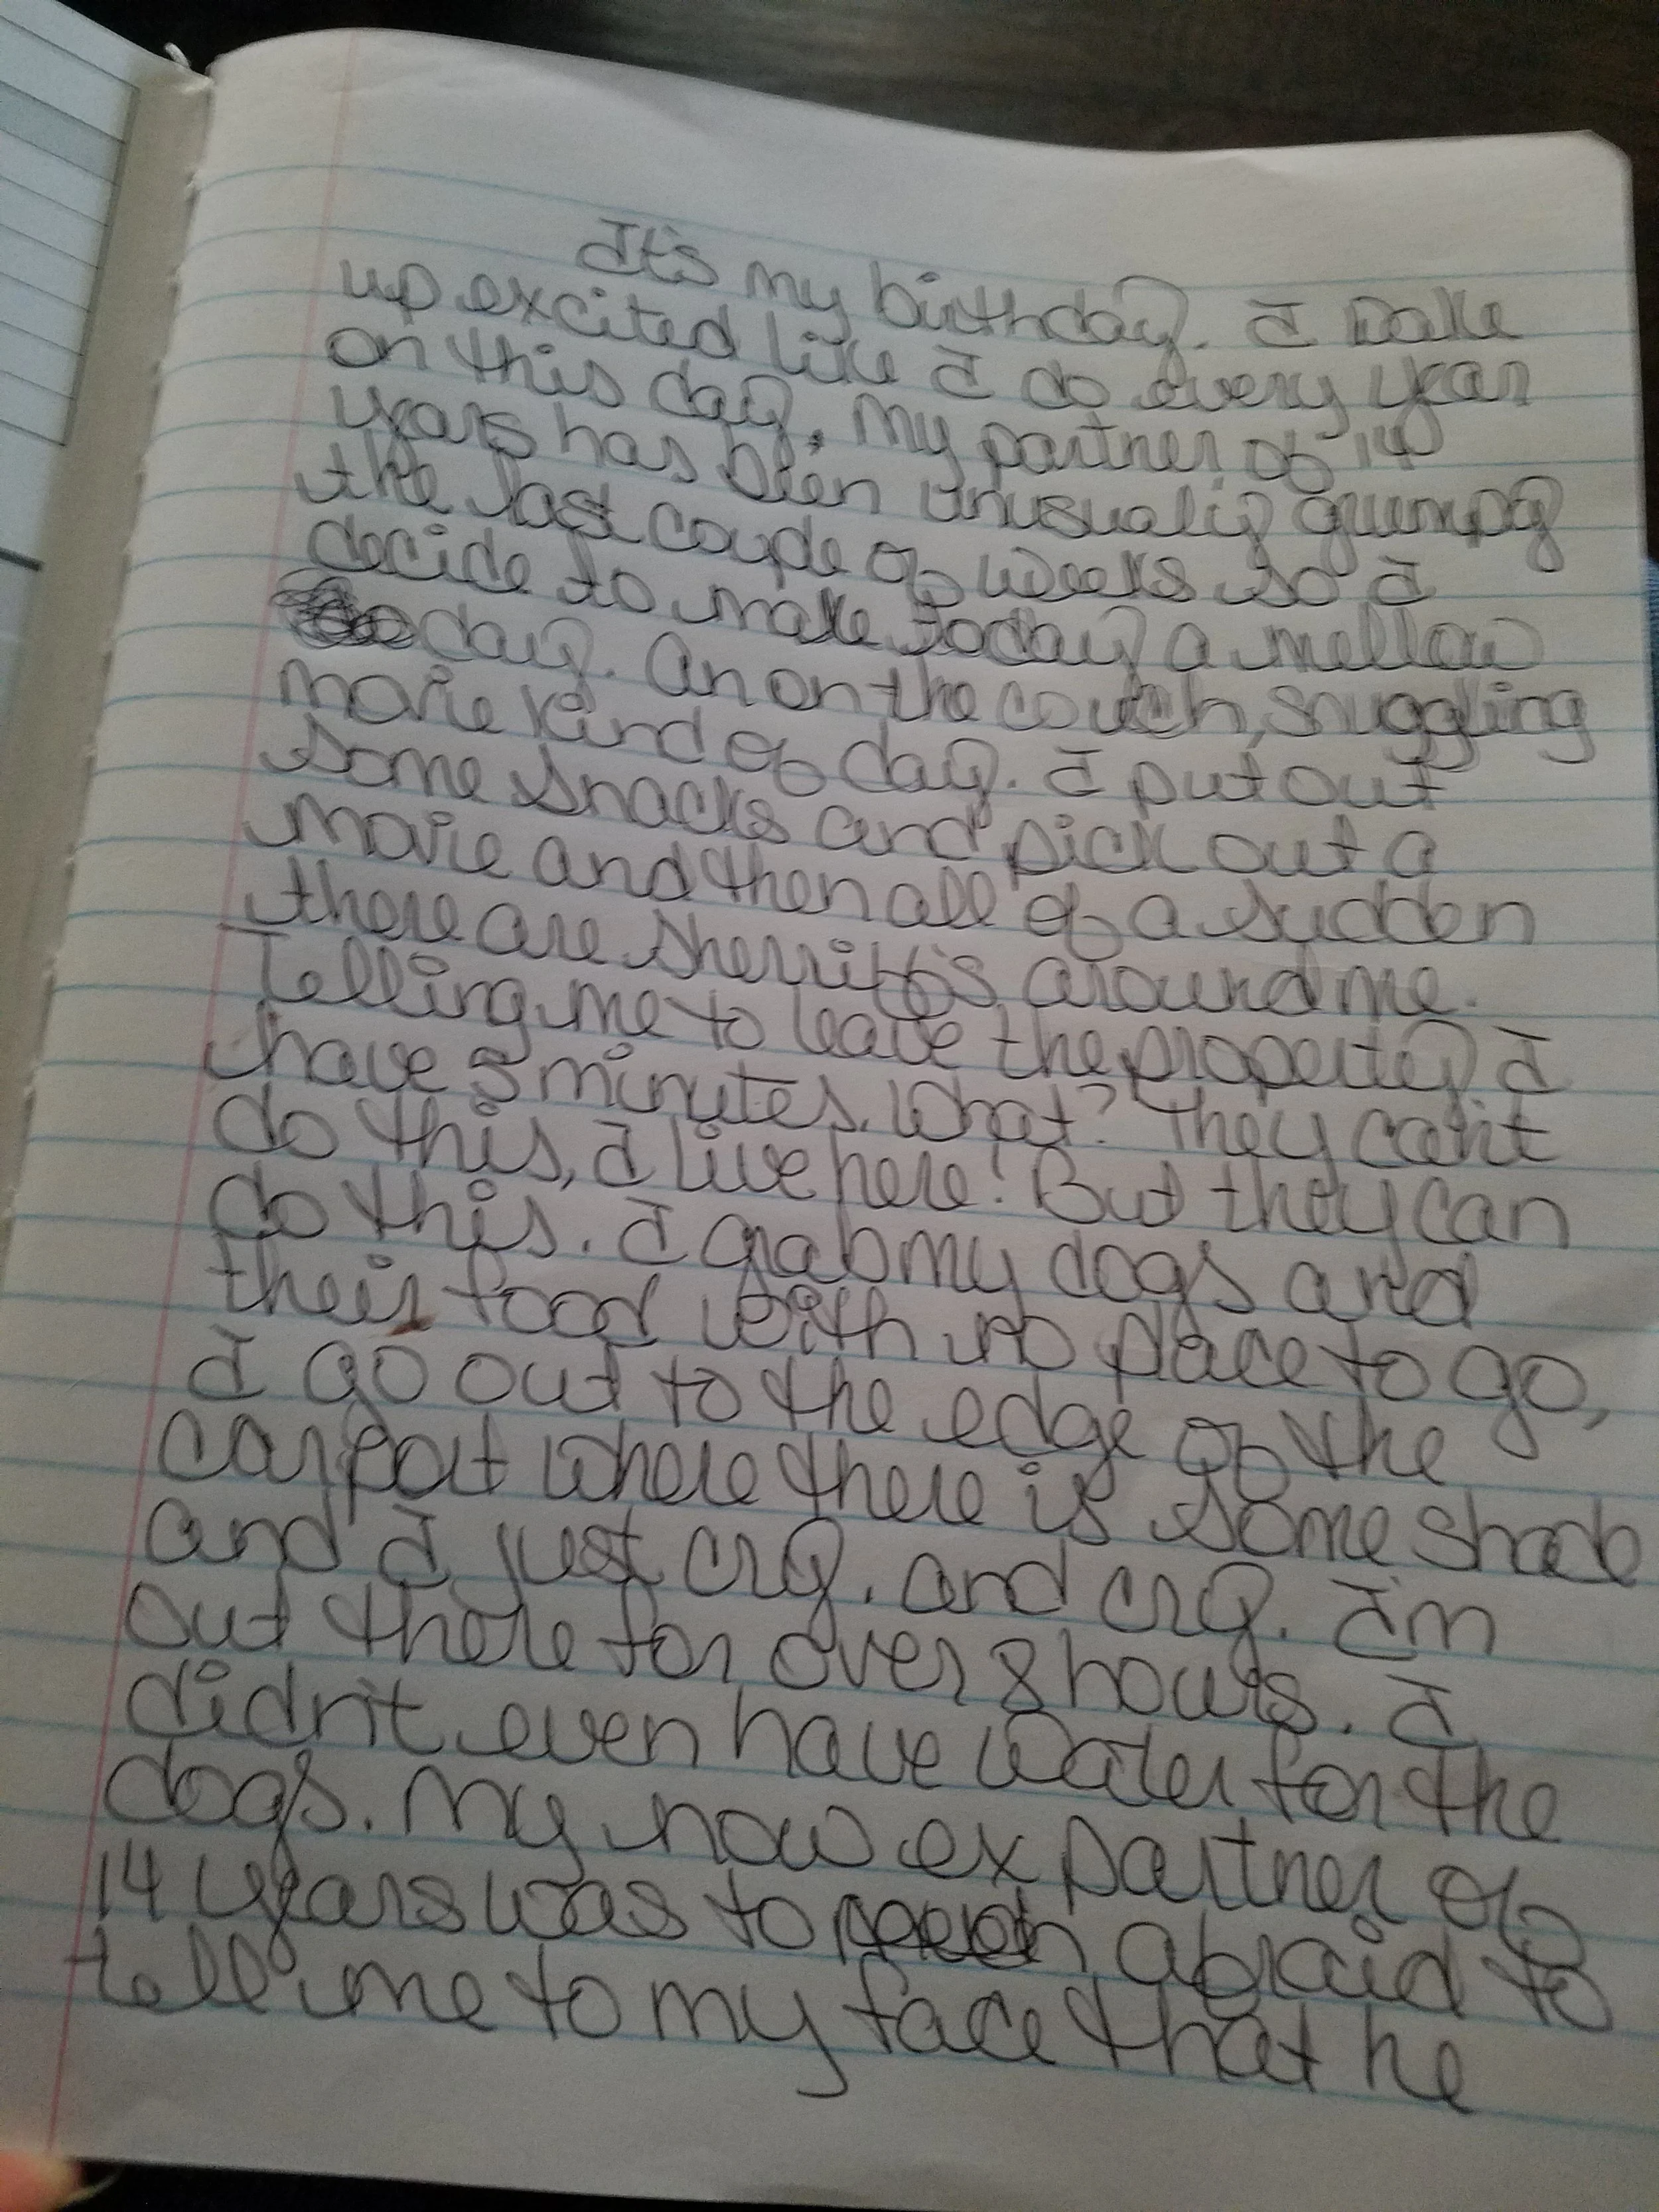 It's my birthday. I wake
up excited like I do every year
on this day. My partner of 14
years has been unusually grumpy
the last couple of weeks so I
decide to make today a mellow
day. An on the couch, snuggling
movie kind of day. I put out
some snacks and pick out a
movie and then all of a sudden
there are sherriff's around me.
Telling me to leave the property I
have 5 minutes. What? They can't
do this, I live here! But they can
do this. I grab my dogs and
their food with no place to go,
I go out to the edge of the
carport where there is some shade
and I just cry. and cry. I'm
out there for over 8 hours. I
didn't even have water for the
dogs. My now ex partner of
14 years was to afraid to
tell me to my face that he